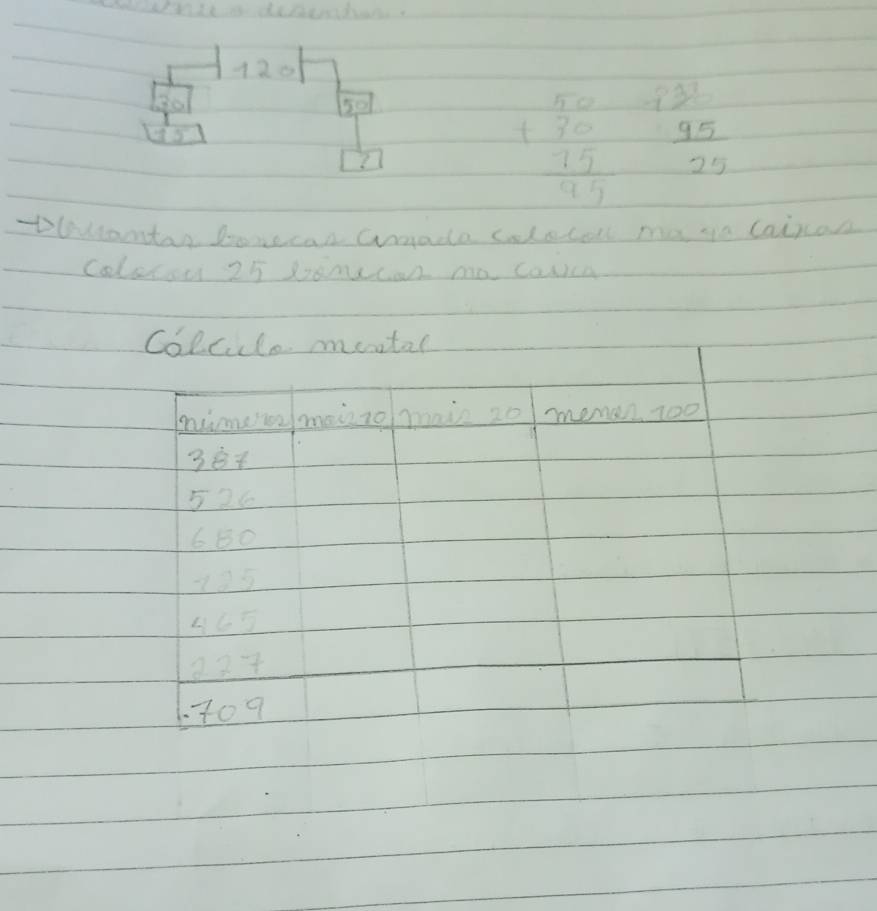 desenho.
120
30 50
15 ?
50 120
+ 30 95
15 25
95
Quantas bonecas Amada colocou na 4ª caixas
Colocou 25 bonecas na caixa
Cálculo mental
números mais 10 mais 20 menos 100
387
526
680
125
465
227
709